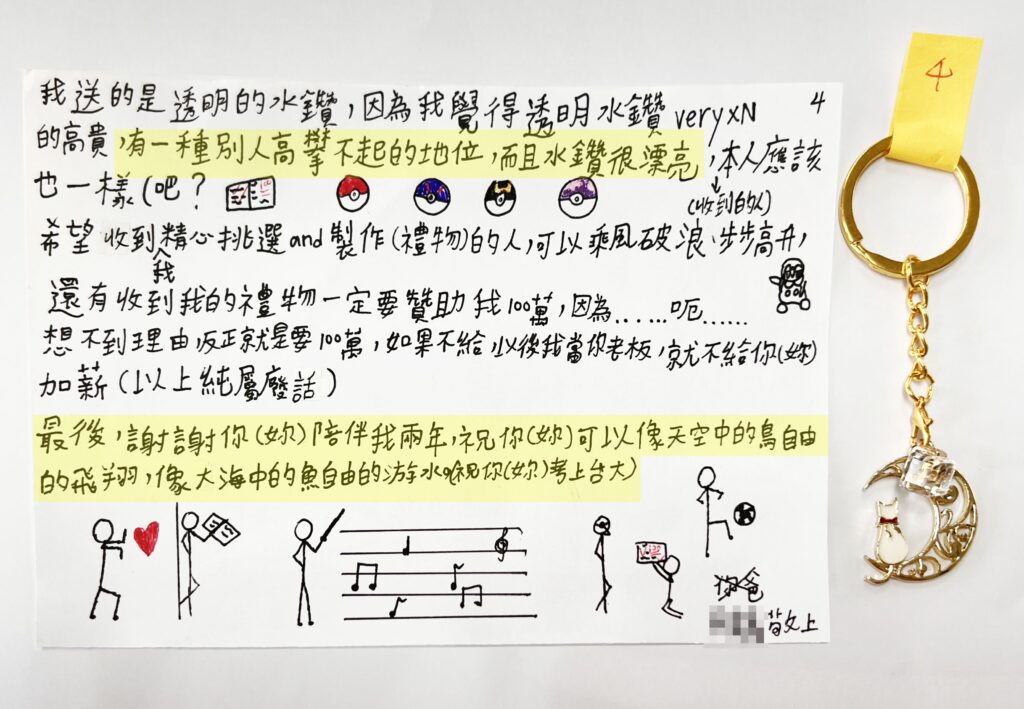 4
我送的是透明的水鑽，因為我覺得透明水鑽veryxN 4
的高貴，有一種別人高攀不起的地位，而且水鑽很漂亮，本人應該
也一樣(吧？
(收到的人)
希望收到我精心挑選and製作(禮物)的人，可以乘風破浪、步步高升，
還有收到我的禮物一定要贊助我100萬，因為……呃……
想不到理由反正就是要100萬，如果不給以後我當你老板，就不給你(妳)
加薪(以上純屬廢話)
最後，謝謝你(妳)陪伴我兩年，祝你(妳)可以像天空中的鳥自由
的飛翔，像大海中的魚自由的游水(祝你(妳)考上台大)
你爸
敬上